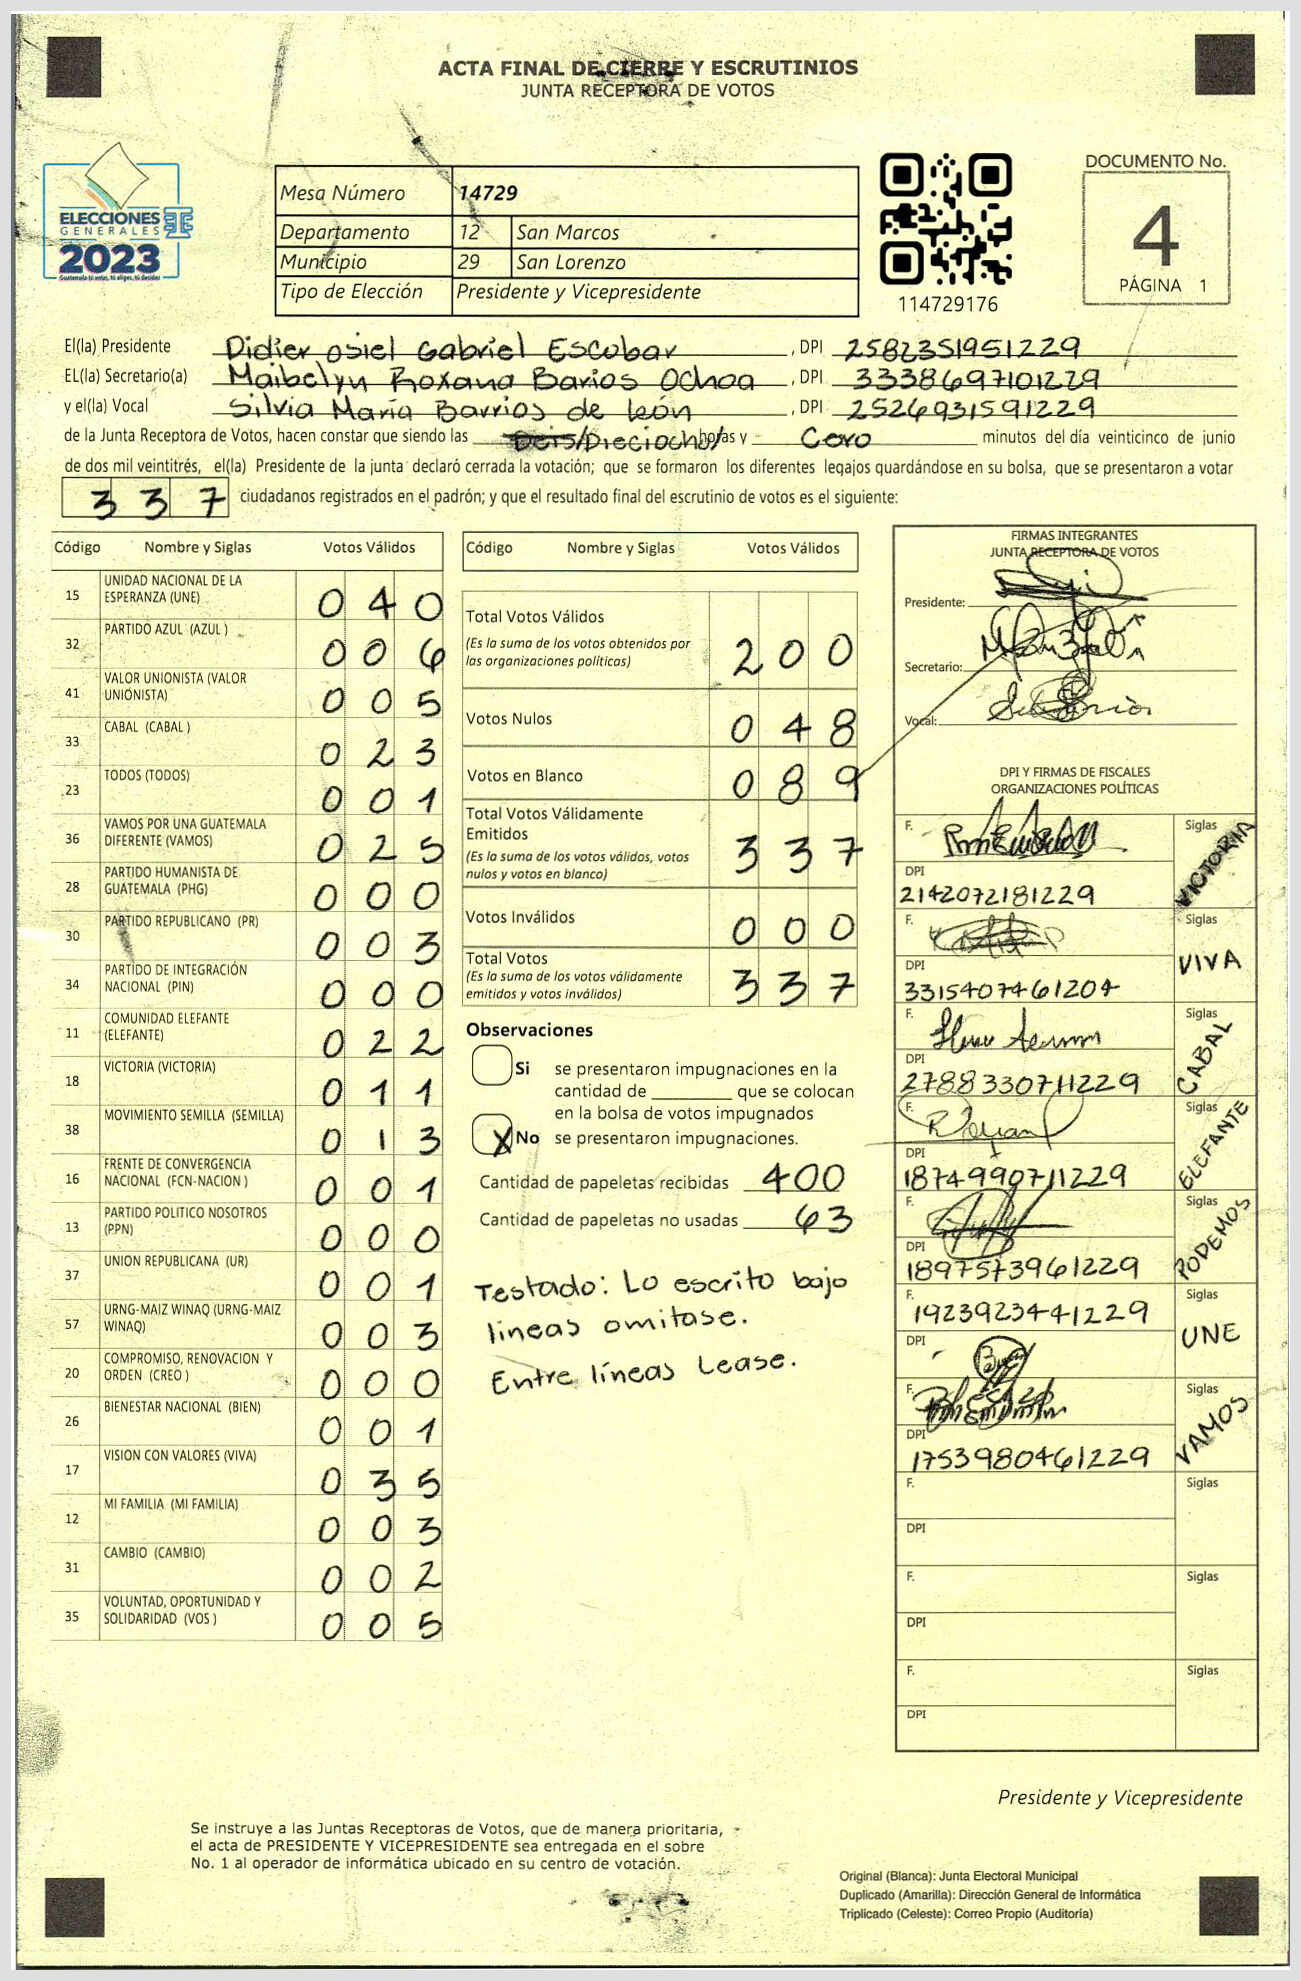 ACTA FINAL DE CIERRE Y ESCRUTINIOS
JUNTA RECEPTORA DE VOTOS
ELECCIONES
GENERALES
2023
Guatemala tú votas, tú eliges, tú decides
Mesa Número 14729
Departamento 12 San Marcos
Municipio 29 San Lorenzo
Tipo de Elección Presidente y Vicepresidente
114729176
DOCUMENTO No.
4
PÁGINA 1
El(la) Presidente Didier osiel Gabriel Escobar , DPI 2582351951229
EL(la) Secretario(a) Maibelyn Roxana Barios Ochoa , DPI 3338697101229
y el(la) Vocal Silvia María Barrios de león , DPI 2526931591229
de la Junta Receptora de Votos, hacen constar que siendo las Deis/Dieciocho/ horas y Cero minutos del día veinticinco de junio
de dos mil veintitrés, el(la) Presidente de la junta declaró cerrada la votación; que se formaron los diferentes legajos guardándose en su bolsa, que se presentaron a votar
337 ciudadanos registrados en el padrón; y que el resultado final del escrutinio de votos es el siguiente:
Código Nombre y Siglas Votos Válidos
15 UNIDAD NACIONAL DE LA ESPERANZA (UNE) 040
32 PARTIDO AZUL (AZUL ) 006
41 VALOR UNIONISTA (VALOR UNIONISTA) 005
33 CABAL (CABAL ) 023
23 TODOS (TODOS) 001
36 VAMOS POR UNA GUATEMALA DIFERENTE (VAMOS) 025
28 PARTIDO HUMANISTA DE GUATEMALA (PHG) 000
30 PARTIDO REPUBLICANO (PR) 003
34 PARTIDO DE INTEGRACIÓN NACIONAL (PIN) 000
11 COMUNIDAD ELEFANTE (ELEFANTE) 022
18 VICTORIA (VICTORIA) 011
38 MOVIMIENTO SEMILLA (SEMILLA) 013
16 FRENTE DE CONVERGENCIA NACIONAL (FCN-NACION ) 001
13 PARTIDO POLITICO NOSOTROS (PPN) 000
37 UNION REPUBLICANA (UR) 001
57 URNG-MAIZ WINAQ (URNG-MAIZ WINAQ) 003
20 COMPROMISO, RENOVACION Y ORDEN (CREO ) 000
26 BIENESTAR NACIONAL (BIEN) 001
17 VISION CON VALORES (VIVA) 035
12 MI FAMILIA (MI FAMILIA) 003
31 CAMBIO (CAMBIO) 002
35 VOLUNTAD, OPORTUNIDAD Y SOLIDARIDAD (VOS ) 005
Código Nombre y Siglas Votos Válidos
Total Votos Válidos 200
(Es la suma de los votos obtenidos por
las organizaciones políticas)
Votos Nulos 048
Votos en Blanco 089
Total Votos Válidamente
Emitidos 337
(Es la suma de los votos válidos, votos
nulos y votos en blanco)
Votos Inválidos 000
Total Votos 337
(Es la suma de los votos válidamente
emitidos y votos inválidos)
Observaciones
Si se presentaron impugnaciones en la
cantidad de ________ que se colocan
en la bolsa de votos impugnados
X No se presentaron impugnaciones.
Cantidad de papeletas recibidas 400
Cantidad de papeletas no usadas 63
Testado: Lo escrito bajo
lineas omitase.
Entre líneas Lease.
FIRMAS INTEGRANTES
JUNTA RECEPTORA DE VOTOS
Presidente:
Secretario:
Vocal:
DPI Y FIRMAS DE FISCALES
ORGANIZACIONES POLÍTICAS
F. Siglas VICTORIA
DPI 2142072181229
F. Siglas VIVA
DPI 3315407461204
F. Siglas CABAL
DPI 2788330711229
F. Siglas ELEFANTE
DPI 1874990711229
F. Siglas PODEMOS
DPI 1897573961229
F. 1923923441229 Siglas UNE
DPI
F. Siglas VAMOS
DPI 1753980461229
F. Siglas
DPI
F. Siglas
DPI
F. Siglas
DPI
Presidente y Vicepresidente
Se instruye a las Juntas Receptoras de Votos, que de manera prioritaria,
el acta de PRESIDENTE Y VICEPRESIDENTE sea entregada en el sobre
No. 1 al operador de informática ubicado en su centro de votación.
Original (Blanca): Junta Electoral Municipal
Duplicado (Amarilla): Dirección General de Informática
Triplicado (Celeste): Correo Propio (Auditoría)